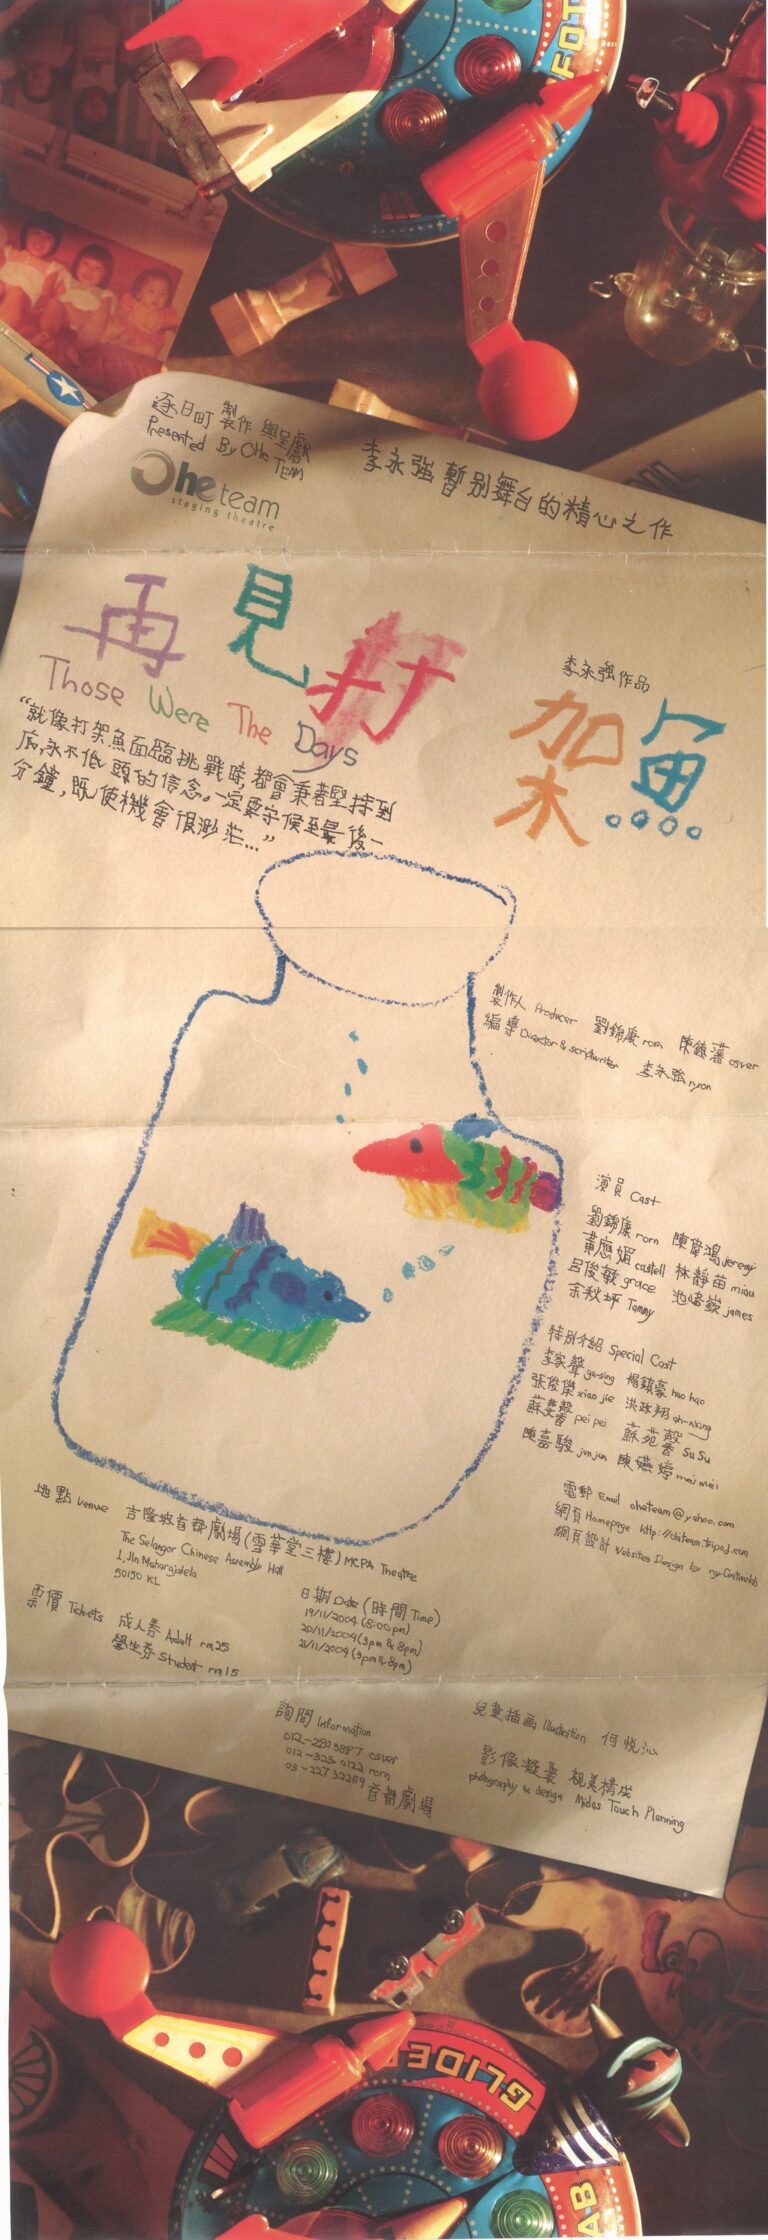 FOT
逐日町 製作 與呈獻
Presented By Ohe TEAM
Ohe team
staging theatre
李永強暫别舞台的精心之作
再見打
Those Were The Days
李永強作品
架魚
“就像打架魚面臨挑戰時，都會秉著堅持到
底，永不低頭的信念。一定要守候至最後一
分鐘，既使機會很渺茫...”
製作人 Producer 劉錦康 rorn 陳鎮藩 osver
編導 Director & scriptwriter 李永強 nyon
演員 Cast
劉錦康 rorn 陳韋鴻 jeremy
黃應媚 castell 林靜苗 miau
呂俊敏 grace
余秋坪 Tammy james
特別介紹 Special Cast
李家聲 ga-sing 楊鎮豪 hao hao
張俊傑 xiao jie 洪政翔
pei pei SuSu
陳嘉駿 jun jun 陳嬿婷 mei mei
電郵 Email oheteam@yahoo.com
網頁 Homepage http://oheteam.tripod.com
網頁設計 Websites Design by
地點 Venue 吉隆坡首都劇場(雪華堂三樓) MCPA Theatre
The Selangor Chinese Assembly Hall
1, Jln Maharajalela
50150 KL
票價 Tickets 成人券 Adult rm25
學生券 Student rm15
日期 Date (時間 Time)
19/11/2004 (8:00pm)
20/11/2004 (3pm & 8pm)
21/11/2004 (3pm & 8pm)
詢問 Information
012-2803987 osver
012-323 0122 rorn
03-22732269 首都劇場
兒童插画 Illustration 何悦沁
影像凝聚 視美構成
photography & design Midas Touch Planning
GLIDE
AB